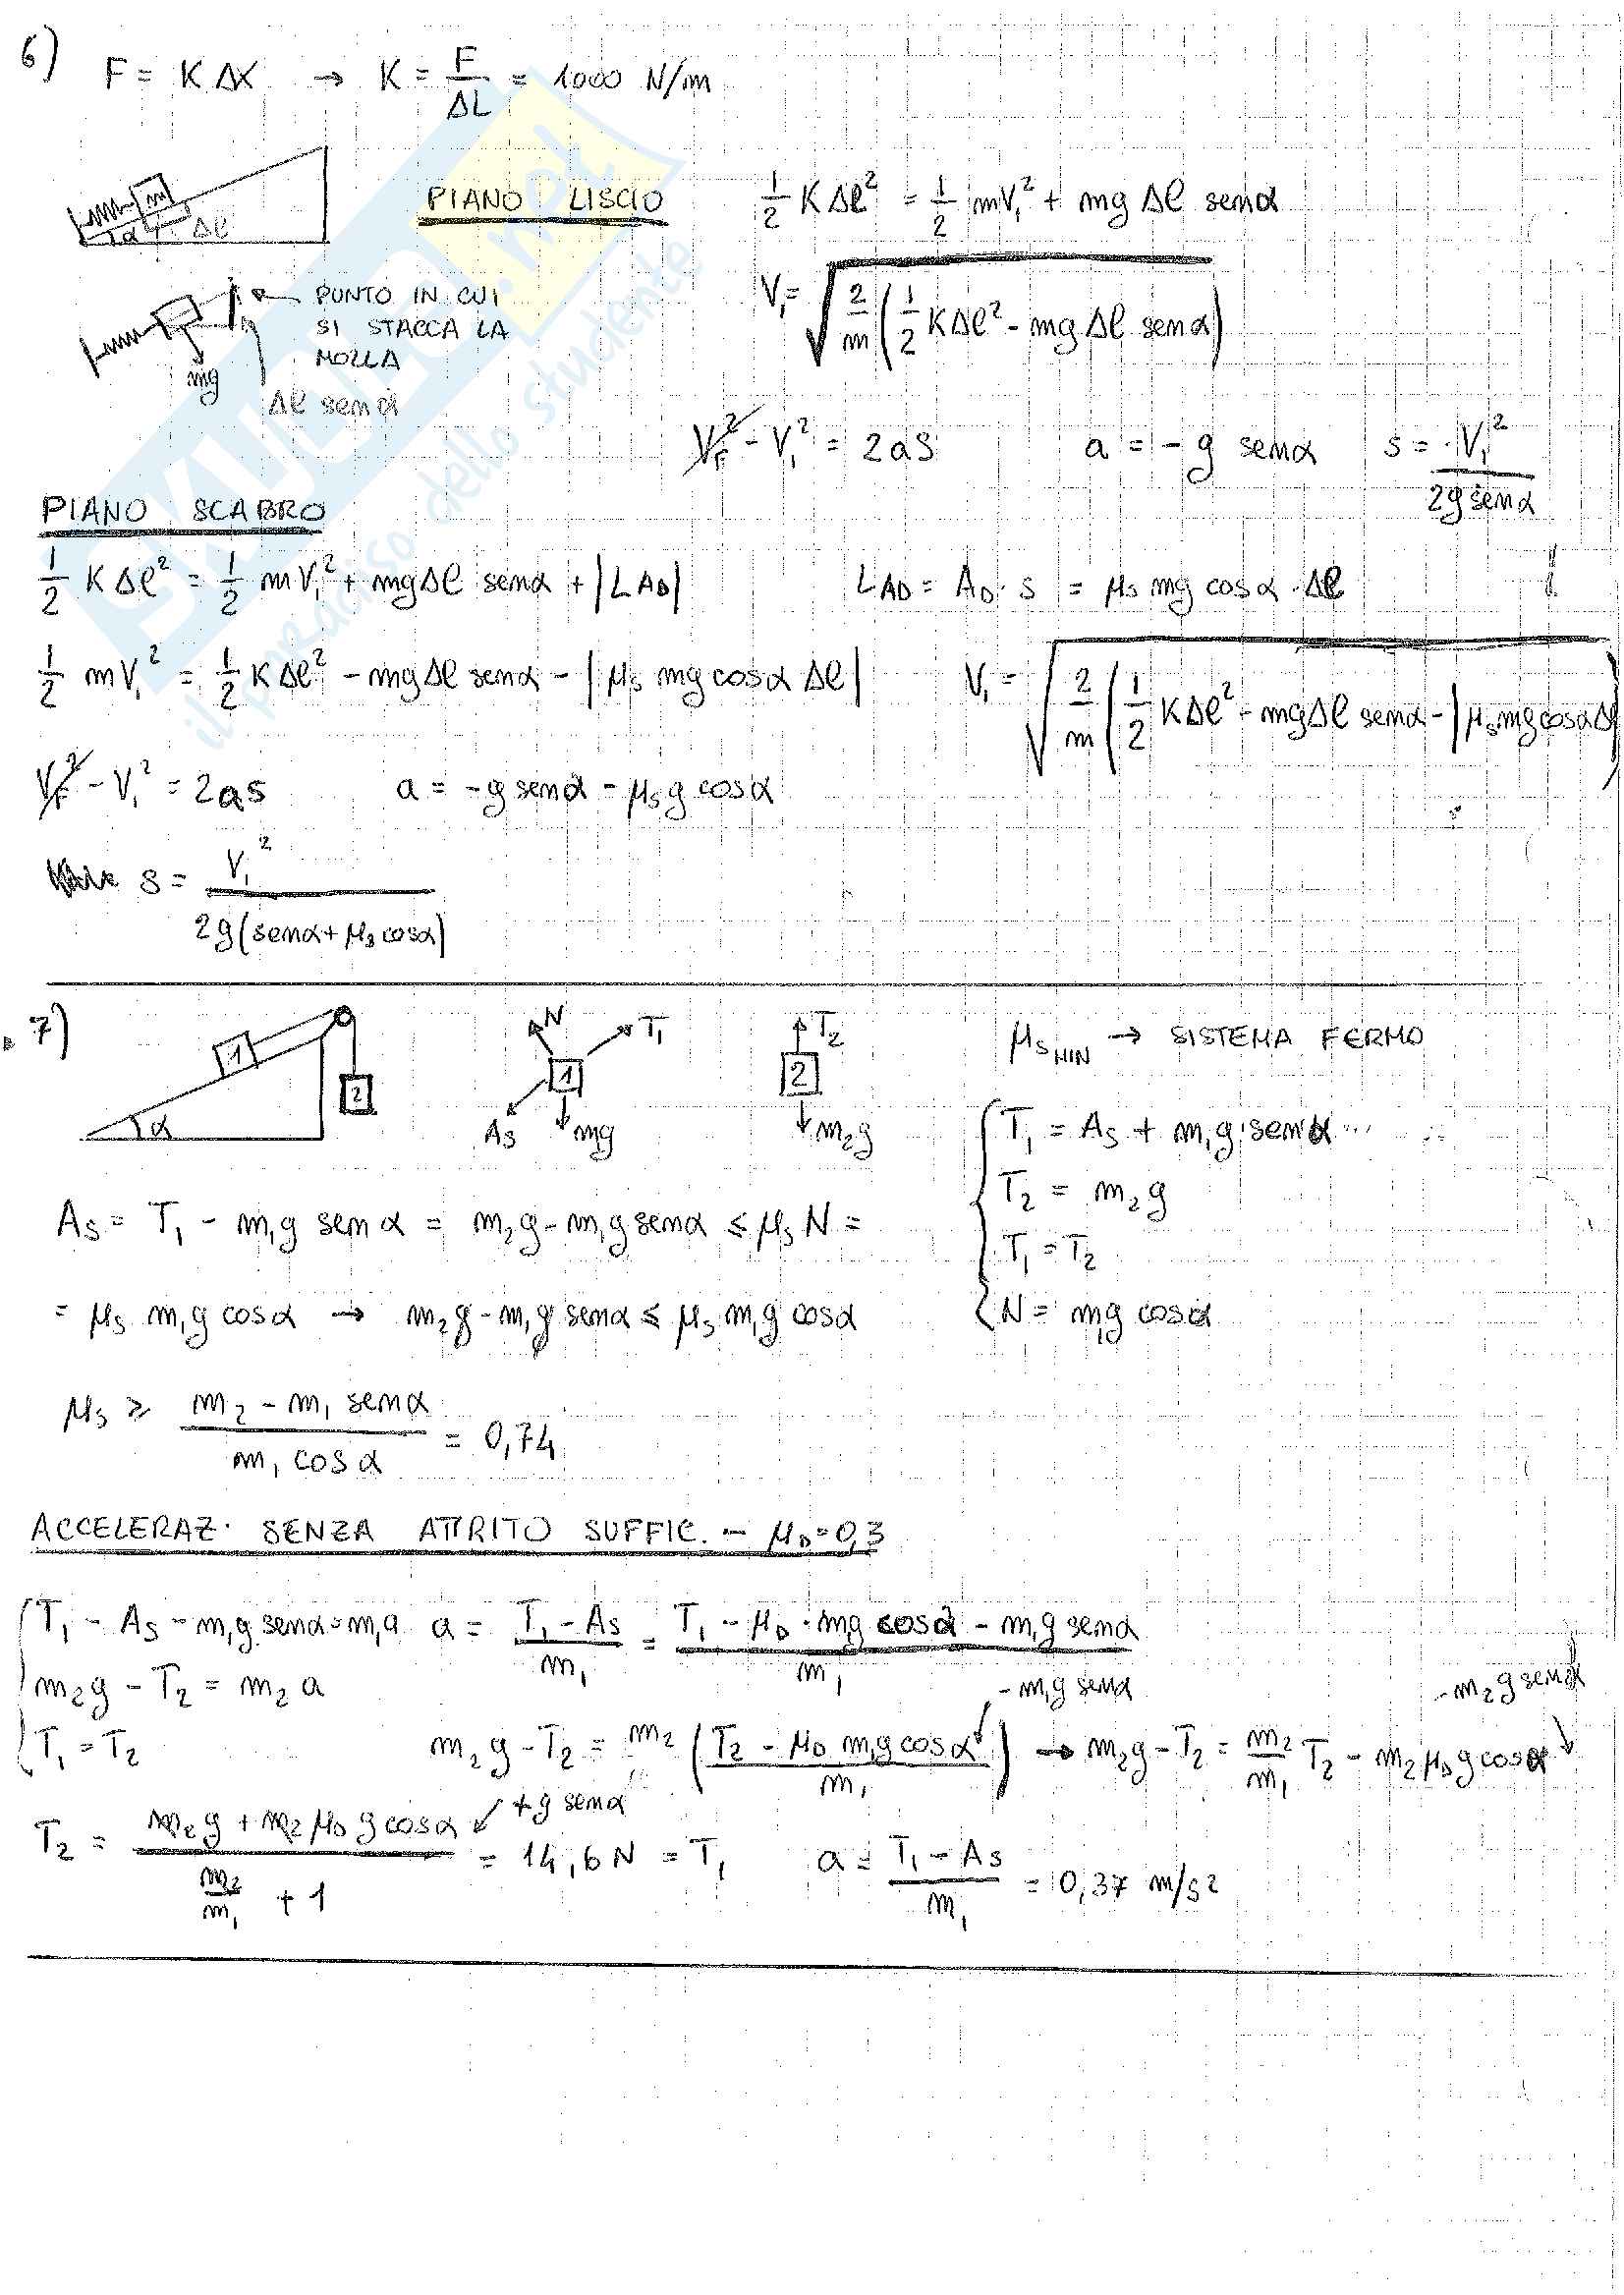 6) F = K ΔX → K = F/ΔL = 1000 N/m
m
α Δℓ
PIANO LISCIO
1/2 K Δℓ² = 1/2 mV₁² + mg Δℓ senα
PUNTO IN CUI
SI STACCA LA
MOLLA
mg
Δℓ senα
V₁ = √(2/m (1/2 KΔℓ² - mg Δℓ senα))
V_F² - V₁² = 2aS a = -g senα s = -V₁²/2g senα
PIANO SCABRO
1/2 K Δℓ² = 1/2 mV₁² + mgΔℓ senα + |L_AD| L_AD = A_D · s = μ_s mg cosα · Δℓ
1/2 mV₁² = 1/2 KΔℓ² - mgΔℓ senα - |μ_s mg cosα Δℓ| V₁ = √(2/m (1/2 KΔℓ² - mgΔℓ senα - |μ_s mg cosα Δℓ|))
V_F² - V₁² = 2as a = -g senα - μ_s g cosα
s = V₁²/2g(senα + μ_s cosα)
7)
1 2 α
N T₁ 1 A_s mg
T₂ 2 m₂g
μ_s MIN → SISTEMA FERMO
T₁ = A_s + m₁g senα
T₂ = m₂g
T₁ = T₂
N = m₁g cosα
A_s = T₁ - m₁g senα = m₂g - m₁g senα ≤ μ_s N =
= μ_s m₁g cosα → m₂g - m₁g senα ≤ μ_s m₁g cosα
μ_s ≥ m₂ - m₁ senα/m₁ cosα = 0,74
ACCELERAZ. SENZA ATTRITO SUFFIC. - μ_D = 0,3
T₁ - A_s - m₁g senα = m₁a a = T₁ - A_s/m₁ = T₁ - μ_D · mg cosα - m₁g senα/m₁
m₂g - T₂ = m₂a
T₁ = T₂
- m₁g senα
- m₂g senα
m₂g - T₂ = m₂ (T₂ - μ_D m₁g cosα/m₁) → m₂g - T₂ = m₂/m₁ T₂ - m₂μ_D g cosα
+ g senα
T₂ = m₂g + m₂ μ_D g cosα/m₂/m₁ + 1 = 14,6 N = T₁ a = T₁ - A_s/m₁ = 0,37 m/s²